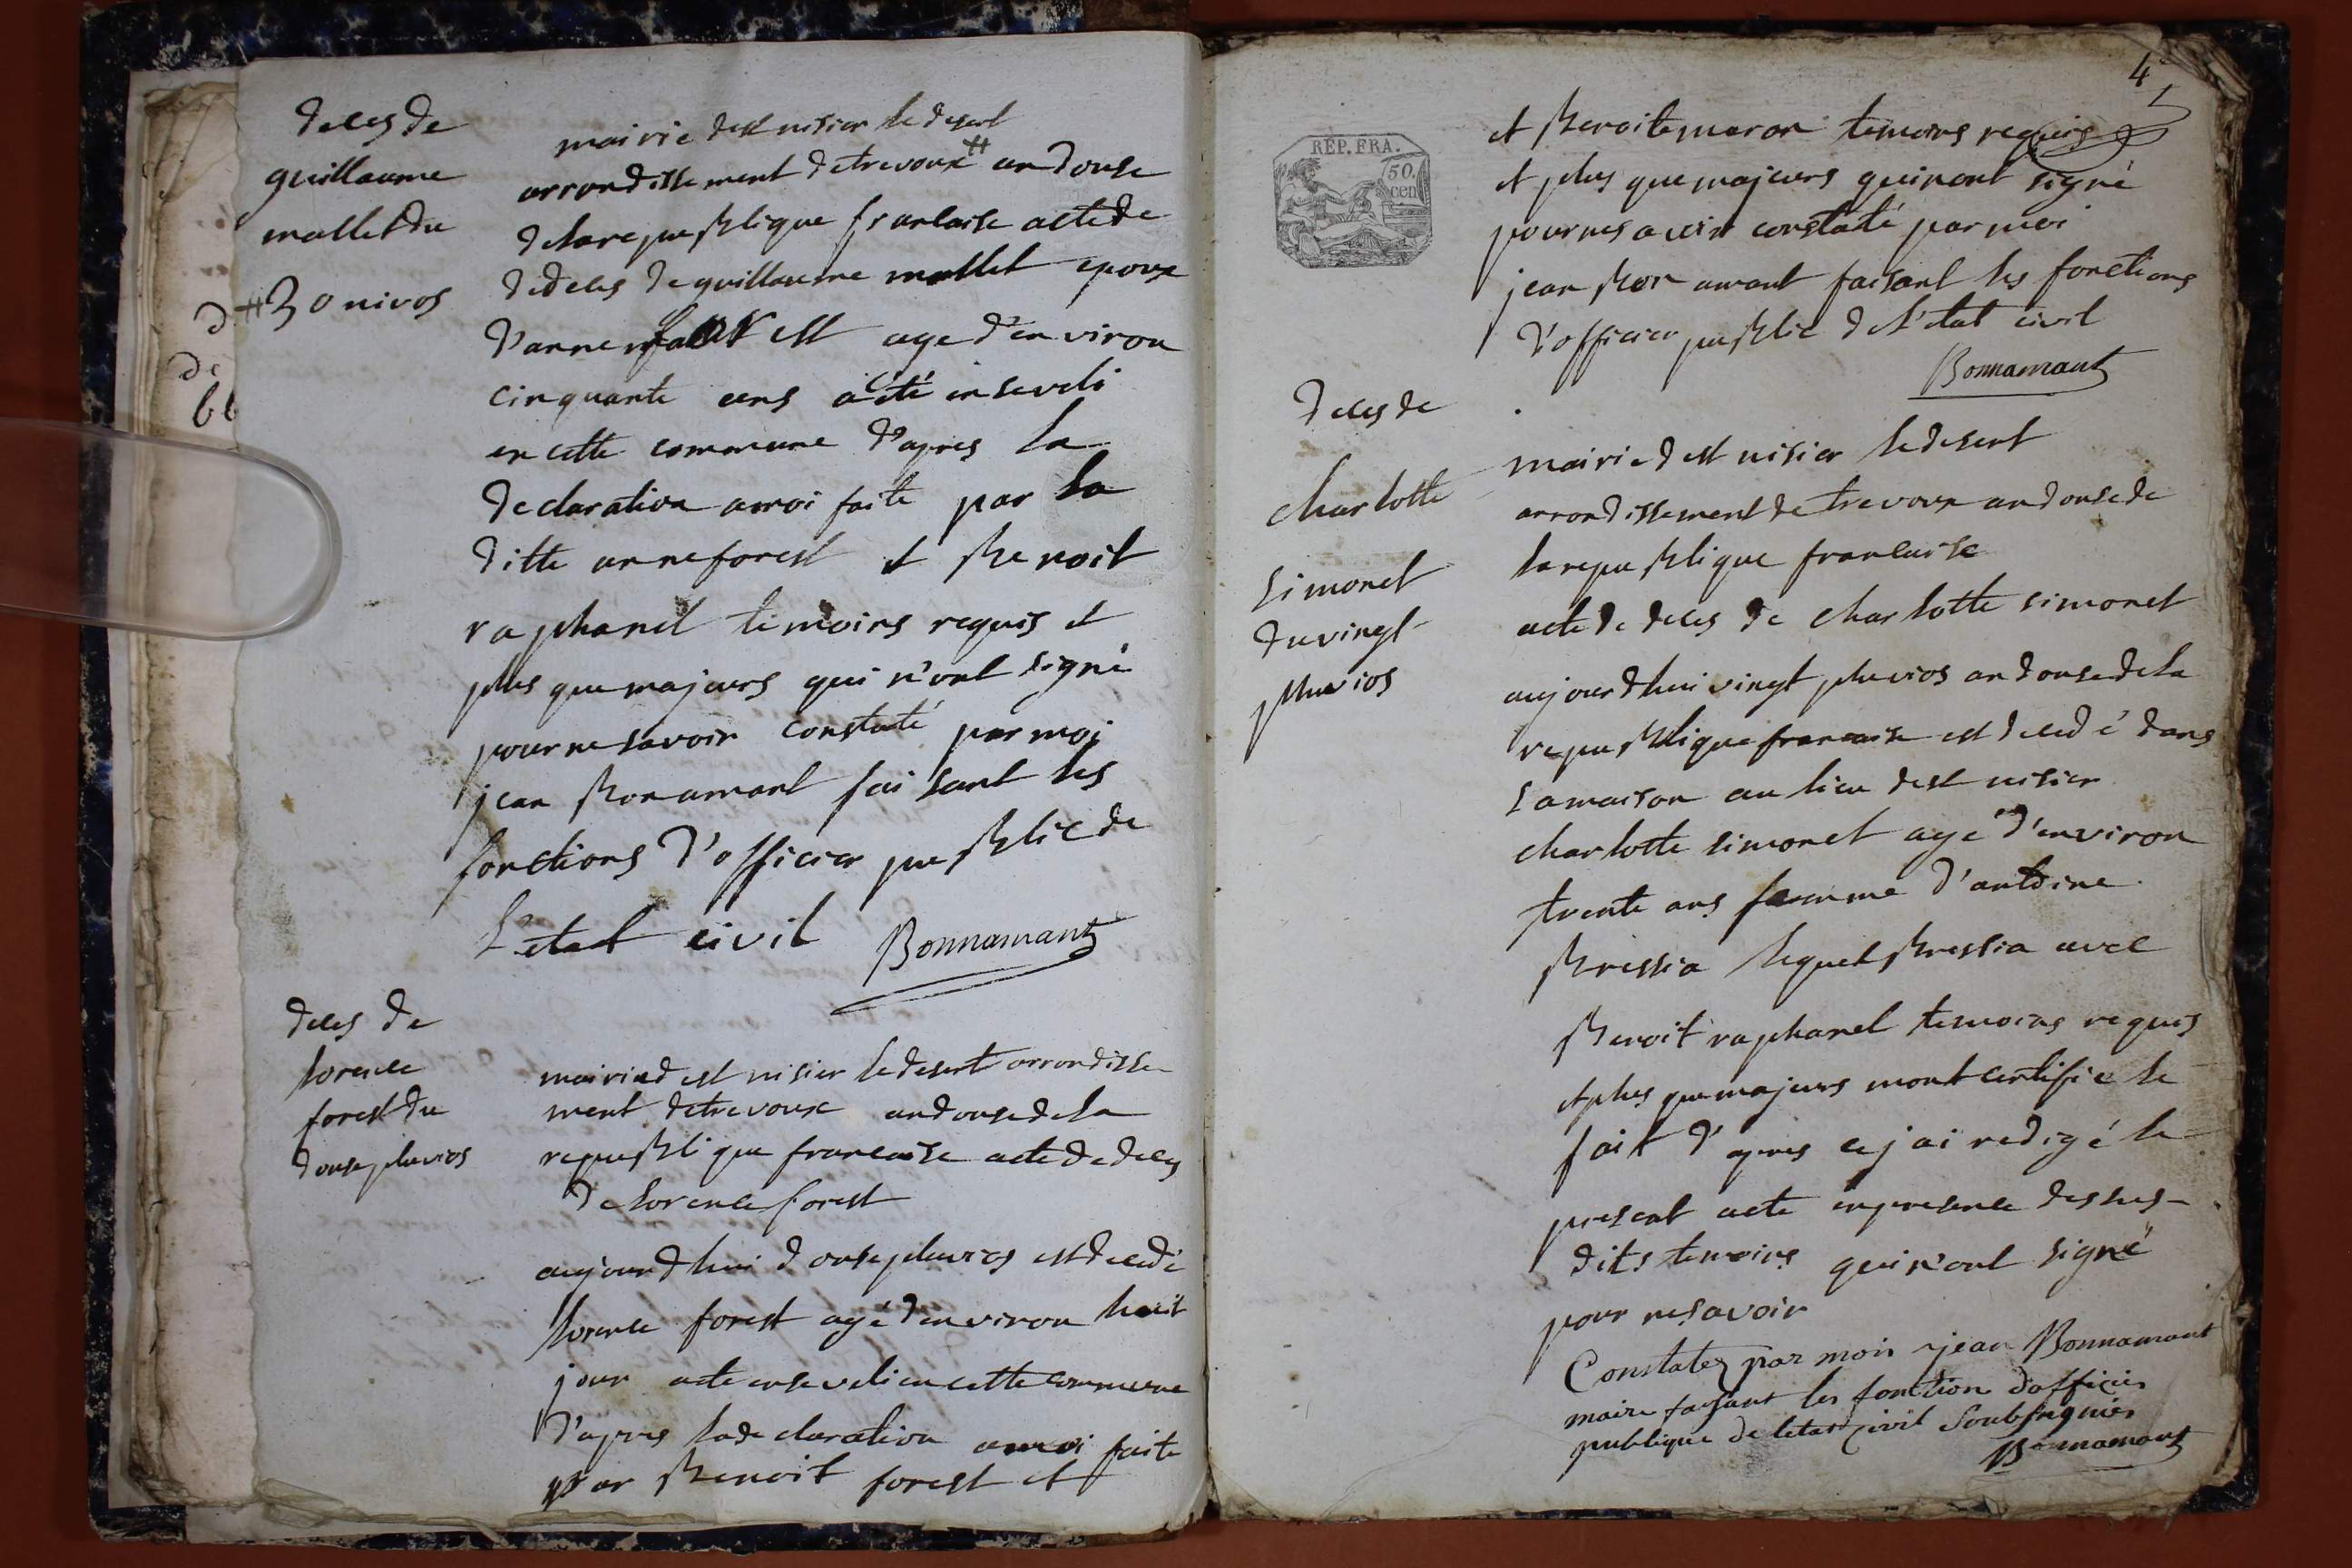 deces de
guillaume
mallet du
# 30 nivos
mairie de st nisier le desert
arrondissement de trevoux # an douse
de la republique francaise acte de
de deces de guillaume mallet epoux
d'anne forest age d'environ
cinquante ans a été enseveli
en cette commune d'apres la
declaration a moi faite par la
ditte anne forest et Benoit
raphanel temoins requis et
plus que majeurs qui n'ont signé
pour ne savoir constaté par moi
jean Bonamant faisant les
fonctions d'officier public de
l'etat civil Bonnamant
deces de
lorence
forest du
douse pluvios
mairie de st nisier le desert arrondisse
ment de trevoux an douse de la
republique francaise acte de deces
de lorence forest
aujourdhui douse pluvios est decedé
lorence forest agé d'environ huit
jour a ete enseveli en cette commune
d'apres la declaration a moi faite
par Benoit forest et
4
REP. FRA.
50.
cen
et Benoite maron temoins requis
et plus que majeurs qui n'ont signé
pour ne savoir constaté par moi
jean Bon amant faisant les fonctions
d'officier public de l'etat civil
Bonnamant
deces de
charlotte
simonet
du vingt
pluvios
mairie de st nisier le desert
arrondissement de trevoux an douse de
la republique francaise
acte de deces de charlotte simonet
aujourdhui vingt pluvios an douse de la
republique francaise est decedé dans
sa maison au lieu de st nisier
charlotte simonet agé d'environ
trente ans femme d'antoine
Bressia lequel Bressia avec
Benoit raphanel temoins requis
et plus que majeurs mont certifie le
fait d'apres ce j'ai redigé le
present acte en presence des sus-
dits temoins qui n'ont signé
pour ne savoir
Constatez par moi jean Bonnamant
maire faisant les fonction dofficier
publique de letat civil Soubsignier
Bonnamant